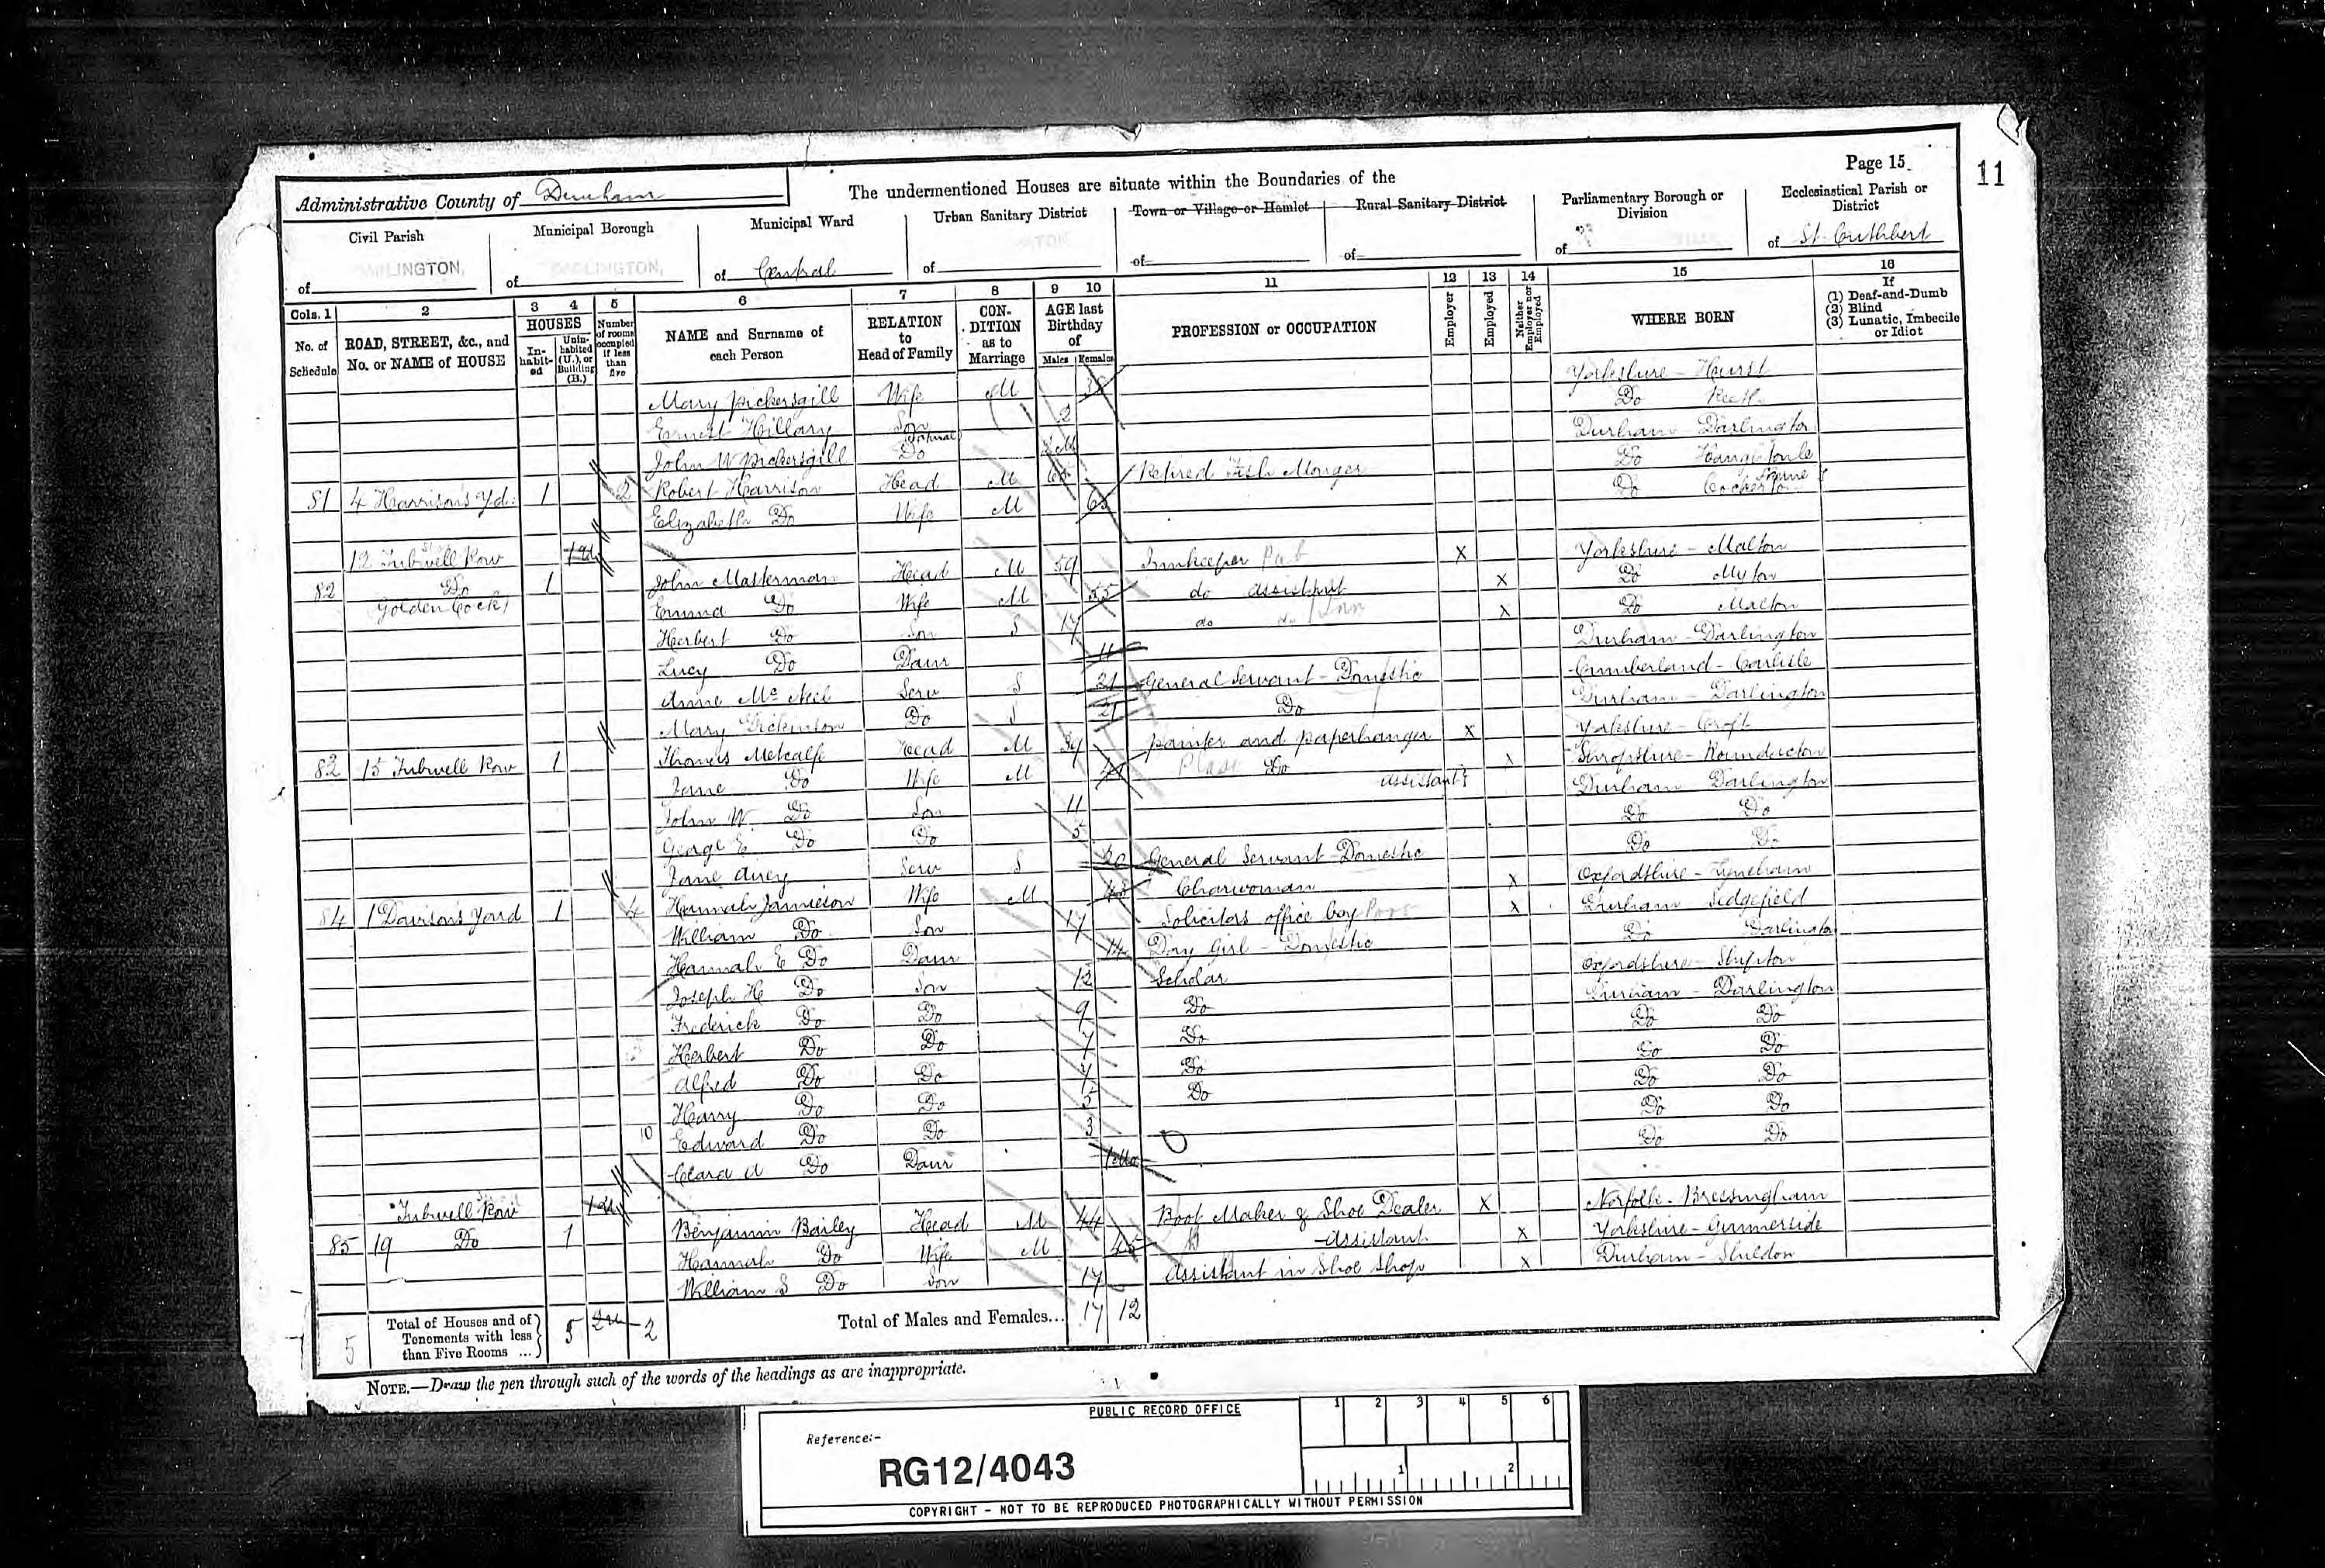 Page 15.
11
Administrative County of Durham
The undermentioned Houses are situate within the Boundaries of the
Civil Parish
of DARLINGTON,
Municipal Borough
of DARLINGTON,
Municipal Ward
of Central
Urban Sanitary District
of
Town or Village or Hamlet
of
Rural Sanitary District
of
Parliamentary Borough or Division
of
Ecclesiastical Parish or District
of St Cuthbert
Cols. 1 2 3 4 5 6 7 8 9 10 11 12 13 14 15 16
No. of Schedule
ROAD, STREET, &c., and No. or NAME of HOUSE
HOUSES
In-habit-ed
Unin-habited (U.), or Building (B.)
Number of rooms occupied if less than five
NAME and Surname of each Person
RELATION to Head of Family
CON-DITION as to Marriage
AGE last Birthday of
Males Females
PROFESSION or OCCUPATION
Employer
Employed
Neither Employer nor Employed
WHERE BORN
If
(1) Deaf-and-Dumb
(2) Blind
(3) Lunatic, Imbecile or Idiot
Mary Pickersgill Wife M Yorkshire - Hurst
Ernest Hillary Son 2 Do
John W Pickersgill Do Durham - Darlington
81 4 Harrison's Yd. 1 2 Robert Harrison Head M Retired Fish Monger Do
Elizabeth Do Wife M 65 Do
12 Tubwell Row 1 U
82 Do 1 John Masterman Head M 59 Innkeeper Pub X Yorkshire - Malton
(Golden Cock) Emma Do Wife M 55 do assistant X Do Myton
Herbert Do Son S 17 do do Inn X Do Malton
Lucy Do Daur 11 Durham - Darlington
Anne Mc Neil Serv S 21 General Servant - Domestic Cumberland - Carlisle
Mary Dickinson Do S 21 Do Durham - Darlington
82 15 Tubwell Row 1 Thomas Metcalfe Head M 39 Painter and paperhanger X Yorkshire - Croft
Jane Do Wife M 41 Do assistant X Shropshire
John W. Do Son 11 Durham Darlington
George E. Do Do 5 Do Do
Jane Serv S 20 General Servant - Domestic Do Do
84 1 Davison's Yard 1 4 Hannah Jamieson Wife M 43 Charwoman X Oxfordshire - Lyneham
William Do Son 17 Solicitors office boy X Durham Sedgefield
Hannah E Do Daur 14 Day Girl - Domestic Do Darlington
Joseph H Do Son 12 Scholar Oxfordshire - Shipton
Frederick Do Do 9 Do Durham - Darlington
Herbert Do Do 7 Do Do Do
Alfred Do Do 7 Do Do Do
Harry Do Do 5 Do Do Do
10 Edward Do Do 3 Do Do
Clara A Do Daur Do Do
Tubwell Row 1 U
85 19 Do 1 Benjamin Bailey Head M 44 Boot Maker & Shoe Dealer X Norfolk - Bressingham
Hannah Do Wife M 45 Do - assistant X Yorkshire - Gunnerside
William S Do Son 17 Assistant in Shoe Shop X Durham - Shildon
5
Total of Houses and of Tenements with less than Five Rooms ...
5 2u 2
Total of Males and Females... 17 12
NOTE.—Draw the pen through such of the words of the headings as are inappropriate.
PUBLIC RECORD OFFICE
1 2 3 4 5 6
Reference:-
RG12/4043
1 2
COPYRIGHT - NOT TO BE REPRODUCED PHOTOGRAPHICALLY WITHOUT PERMISSION